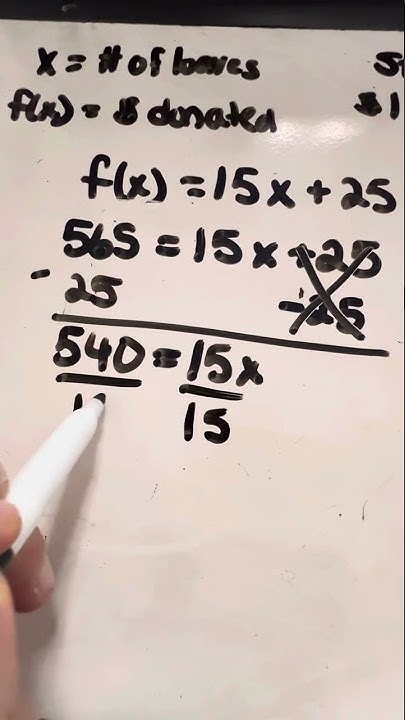 x = # of
f(x) = $ donated
$1
f(x) = 15x + 25
565 = 15x + 25
- 25 - 25
540 = 15x
15